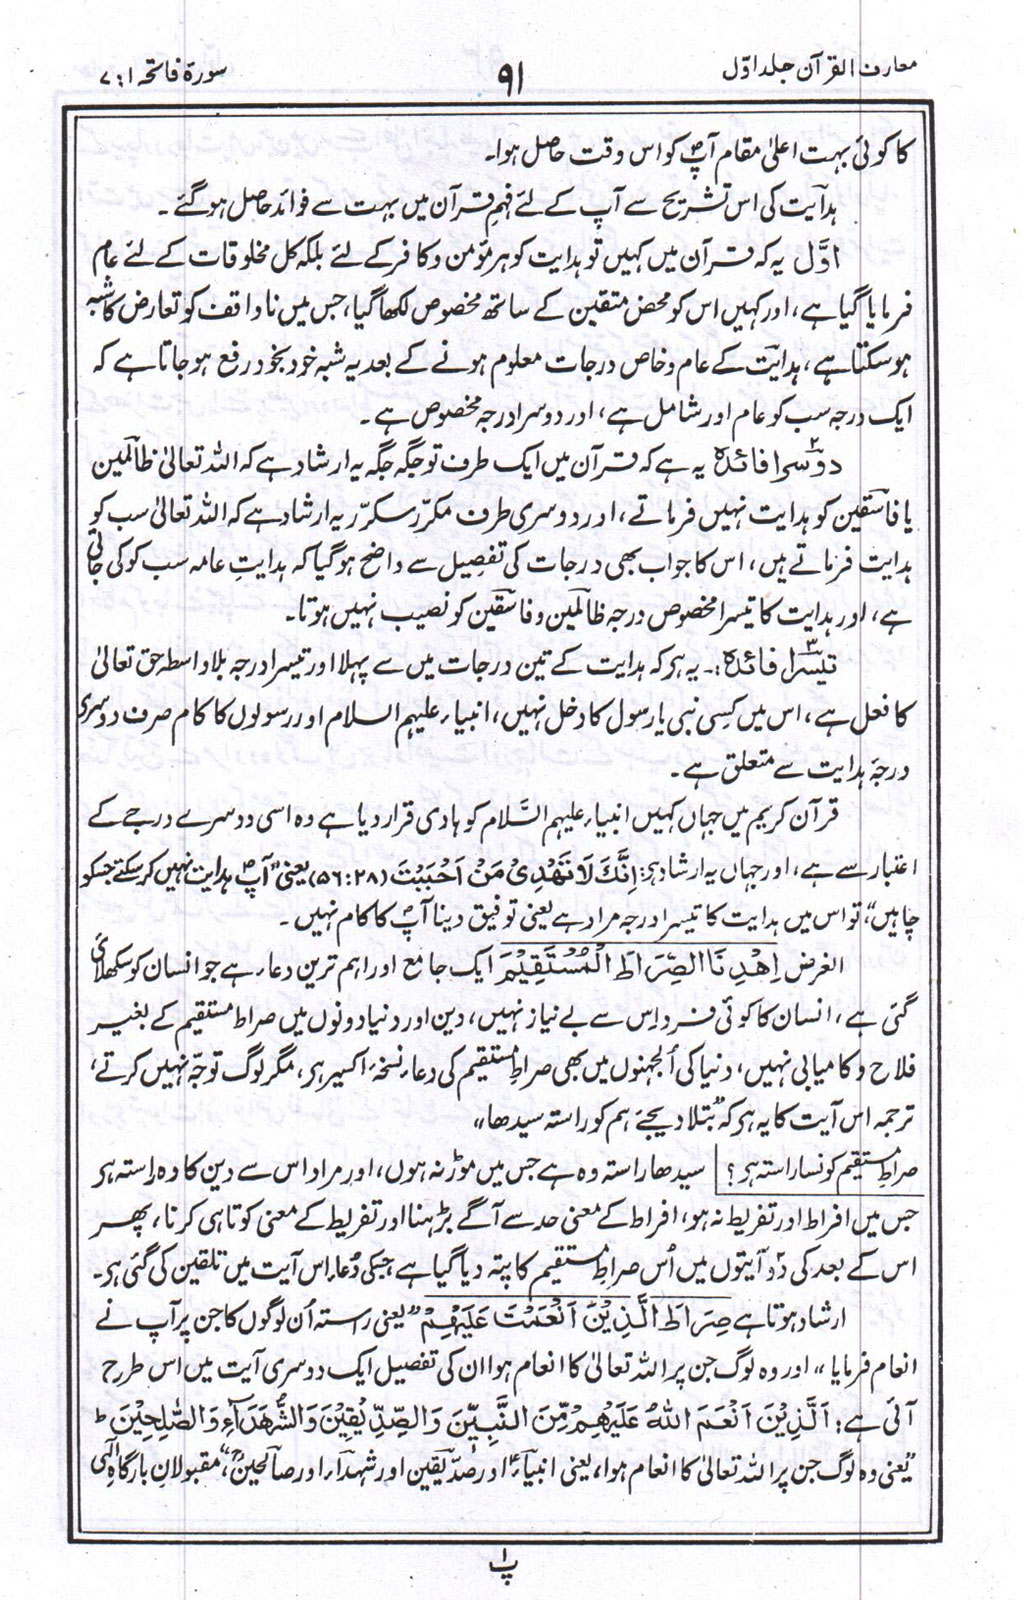 معارف القرآن جلد اوّل
۹۱
سورۃ فاتحہ ۱ : ۷
کا کوئی بہت اعلیٰ مقام آپؐ کو اس وقت حاصل ہوا۔
ہدایت کی اس تشریح سے آپ کے لئے فہمِ قرآن میں بہت سے فوائد حاصل ہوگئے۔
اوّل یہ کہ قرآن میں کہیں تو ہدایت کو ہر مؤمن و کافر کے لئے بلکہ کل مخلوقات کے لئے عام
فرمایا گیا ہے، اور کہیں اس کو محض متقین کے ساتھ مخصوص لکھا گیا، جس میں ناواقف کو تعارض کا شبہ
ہو سکتا ہے، ہدایت کے عام و خاص درجات معلوم ہونے کے بعد یہ شبہ خود بخود رفع ہو جاتا ہے کہ
ایک درجہ سب کو عام اور شامل ہے، اور دوسرا درجہ مخصوص ہے۔
دوسرا۲ فائدہ یہ ہے کہ قرآن میں ایک طرف تو جگہ جگہ یہ ارشاد ہے کہ اللہ تعالیٰ ظالمین
یا فاسقین کو ہدایت نہیں فرماتے، اور دوسری طرف مکرّر سکرّر یہ ارشاد ہے کہ اللہ تعالیٰ سب کو
ہدایت فرماتے ہیں، اس کا جواب بھی درجات کی تفصیل سے واضح ہوگیا کہ ہدایتِ عامہ سب کو کی جاتی
ہے، اور ہدایت کا تیسرا مخصوص درجہ ظالمین و فاسقین کو نصیب نہیں ہوتا۔
تیسرا۳ فائدہ:۔ یہ ہر کہ ہدایت کے تین درجات میں سے پہلا اور تیسرا درجہ بلاواسطہ حق تعالیٰ
کا فعل ہے، اس میں کسی نبی یا رسول کا دخل نہیں، انبیاء علیہم السلام اور رسولوں کا کام صرف دوسری
درجۂ ہدایت سے متعلق ہے۔
قرآن کریم میں جہاں کہیں انبیاء علیہم السَّلام کو ہادی قرار دیا ہے وہ اسی دوسرے درجے کے
اعتبار سے ہے، اور جہاں یہ ارشاد ہر: اِنَّکَ لَا تَھْدِیْ مَنْ اَحْبَبْتَ (۵۶:۲۸) یعنی ”آپؐ ہدایت نہیں کر سکتے جسکو
چاہیں“، تو اس میں ہدایت کا تیسرا درجہ مراد ہے یعنی توفیق دینا آپؐ کا کام نہیں۔
الغرض اِھْدِنَا الصِّرَاطَ الْمُسْتَقِیْمَ ایک جامع اور اہم ترین دعاء ہے جو انسان کو سکھلائی
گئی ہے، انسان کا کوئی فرد اس سے بے نیاز نہیں، دین اور دنیا دونوں میں صراط مستقیم کے بغیر
فلاح و کامیابی نہیں، دنیا کی اُلجھنوں میں بھی صراطِ مستقیم کی دعاء نسخۂ اکسیر ہر، مگر لوگ توجّہ نہیں کرتے،
ترجمہ اس آیت کا یہ ہر کہ ”بتلا دیجئے ہم کو راستہ سیدھا“
صراطِ مستقیم کونسا راستہ ہر؟ سیدھا راستہ وہ ہے جس میں موڑ نہ ہوں، اور مراد اس سے دین کا وہ راستہ ہر
جس میں افراط اور تفریط نہ ہو، افراط کے معنی حد سے آگے بڑھنا اور تفریط کے معنی کوتاہی کرنا، پھر
اس کے بعد کی دو آیتوں میں اُس صراطِ مستقیم کا پتہ دیا گیا ہے جسکی دُعاء اس آیت میں تلقین کی گئی ہر۔
ارشاد ہوتا ہے صِرَاطَ الَّذِیْنَ اَنْعَمْتَ عَلَیْھِمْ ”یعنی رستہ اُن لوگوں کا جن پر آپ نے
انعام فرمایا“ اور وہ لوگ جن پر اللہ تعالیٰ کا انعام ہوا ان کی تفصیل ایک دوسری آیت میں اس طرح
آئی ہے: اَلَّذِیْنَ اَنْعَمَ اللہُ عَلَیْھِمْ مِّنَ النَّبِیّٖنَ وَالصِّدِّیْقِیْنَ وَالشُّھَدَآءِ وَالصّٰلِحِیْنَ ط
”یعنی وہ لوگ جن پر اللہ تعالیٰ کا انعام ہوا، یعنی انبیاءؑ اور صدّیقین اور شہداء اور صالحینؒ“، مقبولانِ بارگاہِ الٰہی کی
پ۱